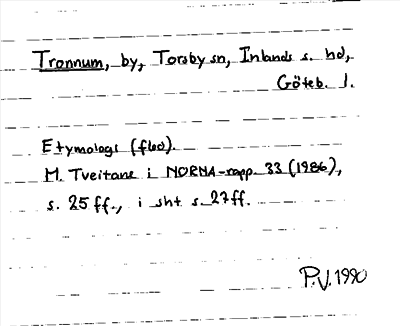 Tronnum, by, Torsby sn, Inlands s. hd,
Göteb. l.
Etymologi (fl00).
M. Tveitane i NORNA-rapp. 33 (1986),
s. 25 ff., i sht s. 27 ff.
P.V. 1990